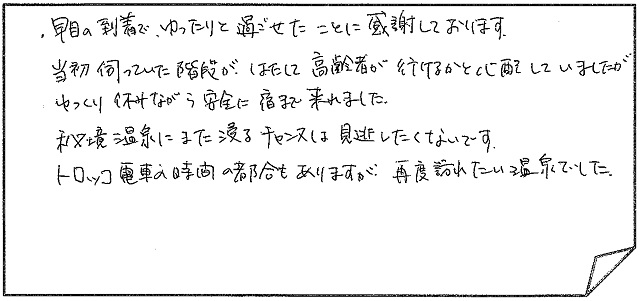 ・早目の到着で、ゆったりと過ごせたことに感謝しております。
当初伺っていた階段が、はたして高齢者が行けるかと心配していましたが
ゆっくり休みながら安全に宿まで来れました。
秘境温泉にまた浸るチャンスは見逃したくないです。
トロッコ電車の時間の都合もありますが、再度訪れたい温泉でした。